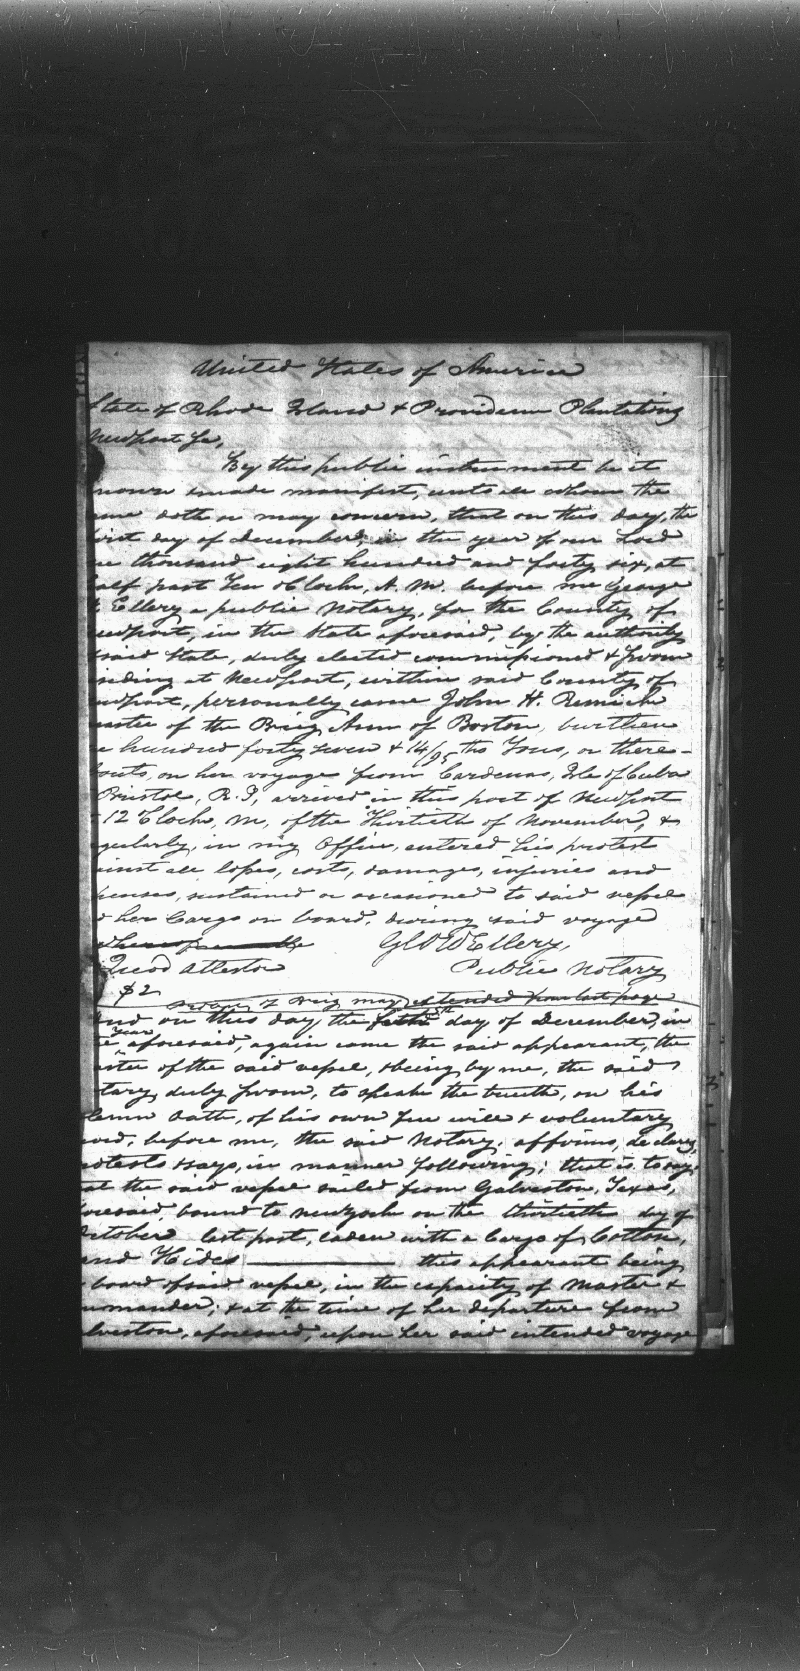 United States of America
State of Rhode Island & Providence Plantations
Newport Sc,
By this public instrument be it
nown & made manifest, unto all whom the
ame doth or may concern, that on this day, the
irst day of December, in the year of our Lord
ne thousand eight hundred and forty six, at
alf past Ten o'Clock, A. M. before me George
Ellery a public Notary, for the County of
ewport, in the State aforesaid, by the authority
said State, duly elected commissioned & sworn
esiding at Newport, within said County of
ewport, personally came John H. Remick
aster of the Brig Ann of Boston, burthen
e hundred forty seven & 14/95 ths Tons, or there-
bouts, on her voyage from Cardenas, Isle of Cuba
Bristol, R. I, arrived in this port of Newport
12 Clock, M, of the Thirtieth of November, &
egularly, in my Office, entered his protest
ainst all loses, costs, damages, injuries and
penses, sustained or occasioned to said vessel
d her Cargo on board, during said voyage
whereof
Geo W Ellery,
Quod Attestor
Public Notary
$2
Protest of Brig May, extended from last page
And on this day the day of December, in
e year aforesaid, again came the said appearant, the
aster of the said vessel, & being by me, the said
tary, duly sworn, to speak the truth, on his
lemn Oath, of his own free will & voluntary
cord, before me, the said Notary, affirms, declares,
rotests & says, in manner following; that is to say:
at the said vessel sailed from Galveston, Texas,
foresaid, bound to New York on the thirtieth day of
October last past, laden with a Cargo of Cotton,
and Hides this appearant being
board of said vessel, in the capacity of Master &
mmander; & at the time of her departure from
lveston, aforesaid, upon her said intended voyage